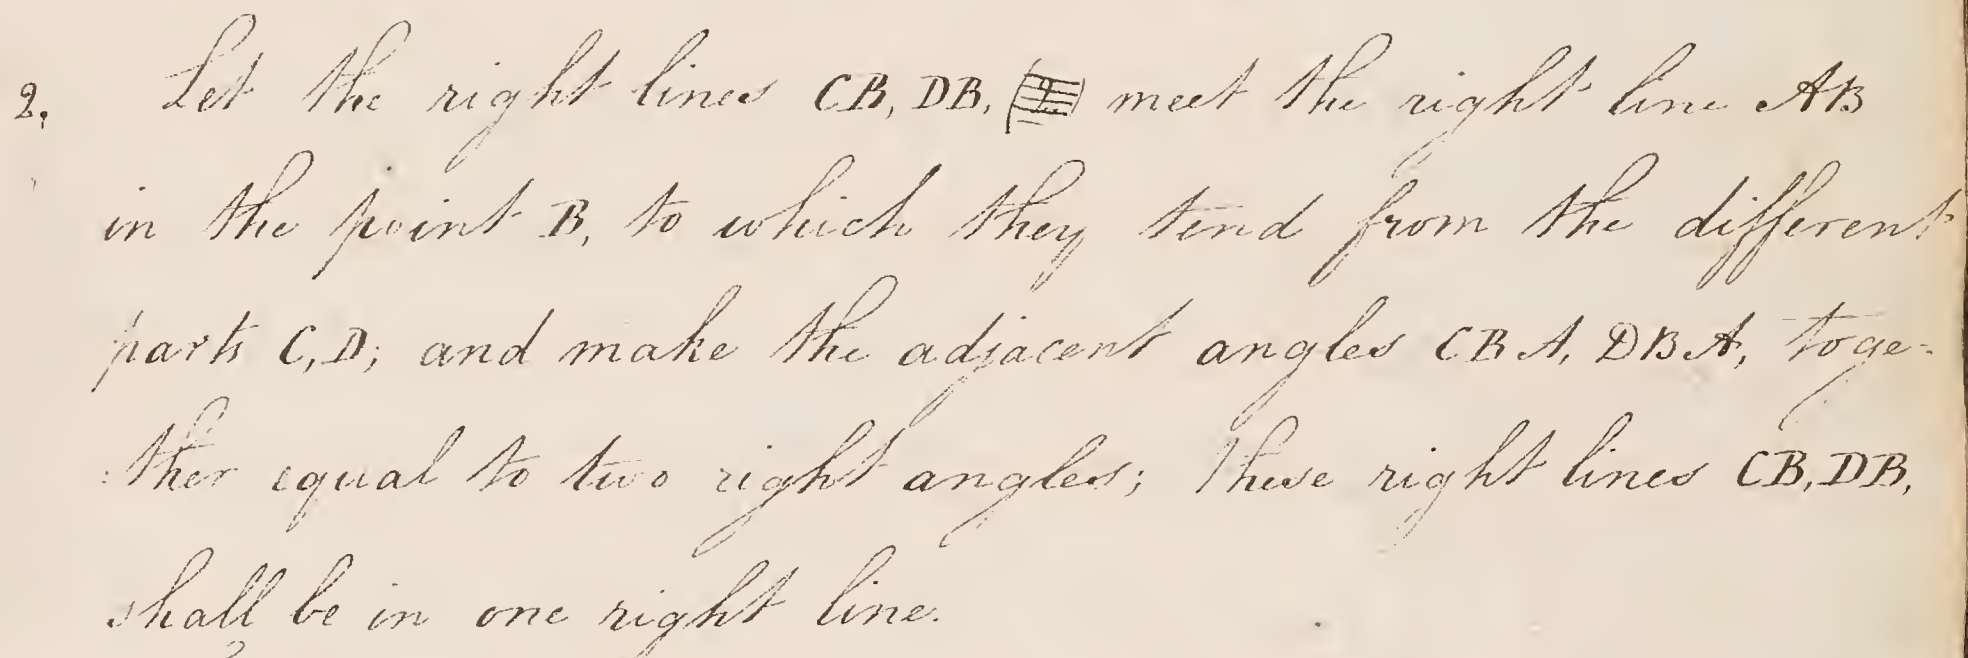 2. Let the right lines CB, DB, meet the right line AB
in the point B, to which they tend from the different
parts C, D; and make the adjacent angles CBA, DBA, toge-
:ther equal to two right angles; these right lines CB, DB,
shall be in one right line.